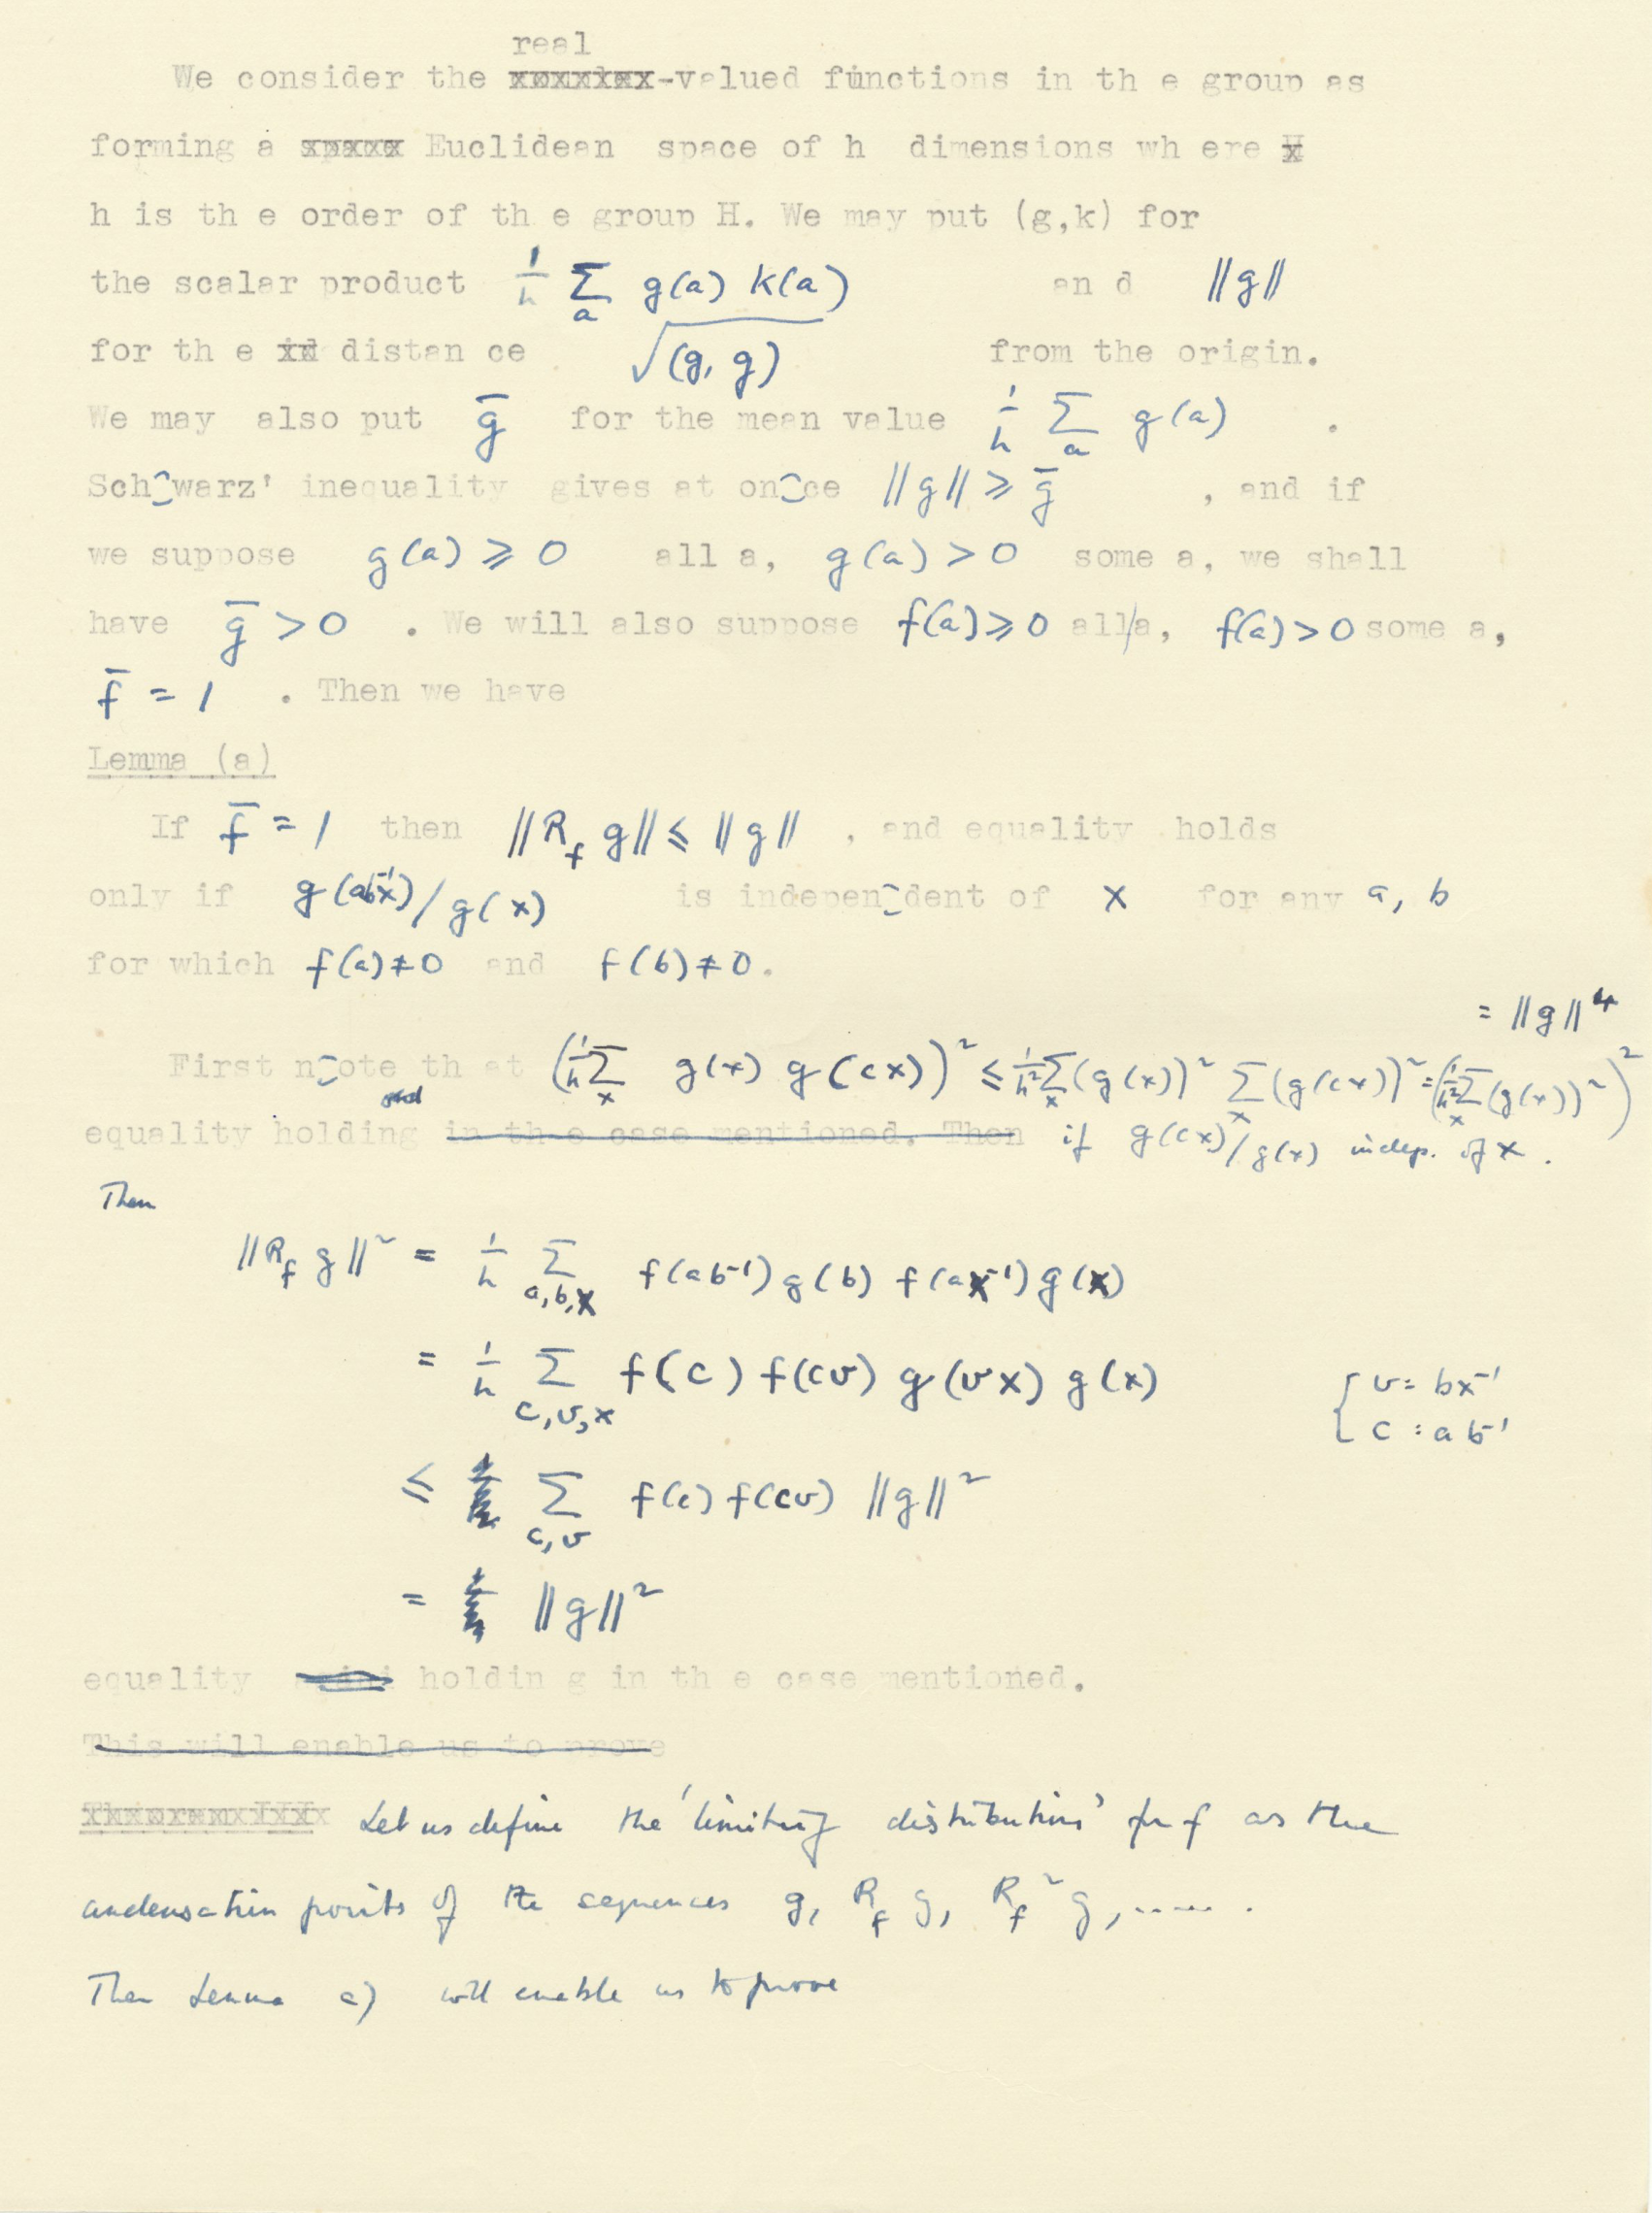 real
We consider the -valued functions in th e group as
forming a Euclidean space of h dimensions wh ere
h is th e order of th e group H. We may put (g,k) for
the scalar product 1/h Σ_a g(a) k(a) an d ‖g‖
for th e distan ce √(g, g) from the origin.
We may also put ḡ for the mean value 1/h Σ_a g(a) .
Sch warz' inequality gives at on ce ‖g‖ ⩾ ḡ , and if
we suppose g(a) ⩾ 0 all a, g(a) > 0 some a, we shall
have ḡ > 0 . We will also suppose f(a) ⩾ 0 all/a, f(a) > 0 some a,
f̄ = 1 . Then we have
Lemma (a)
If f̄ = 1 then ‖R_f g‖ ⩽ ‖g‖ , and equality holds
only if g(ab⁻¹x)/g(x) is indepen dent of x for any a, b
for which f(a) ≠ 0 and f(b) ≠ 0.
= ‖g‖⁴
First n ote th at (1/h Σ_x g(x) g(cx))² ⩽ 1/h² Σ_x (g(x))² Σ_x (g(cx))² = (1/h² Σ_x (g(x))²)²
equality holding in th e case mentioned. Then if g(cx)/g(x) indep. of x .
Then
‖R_f g‖² = 1/h Σ_{a,b,x} f(ab⁻¹) g(b) f(ax⁻¹) g(x)
= 1/h Σ_{c,v,x} f(c) f(cv) g(vx) g(x) { v = bx⁻¹
c = ab⁻¹
⩽ Σ_{c,v} f(c) f(cv) ‖g‖²
= ‖g‖²
equality holdin g in th e case mentioned.
This will enable us to prove
Theorem III Let us define the 'limiting distributions' for f as the
condensation points of the sequences g, R_f g, R_f² g, ..... .
Then Lemma a) will enable us to prove